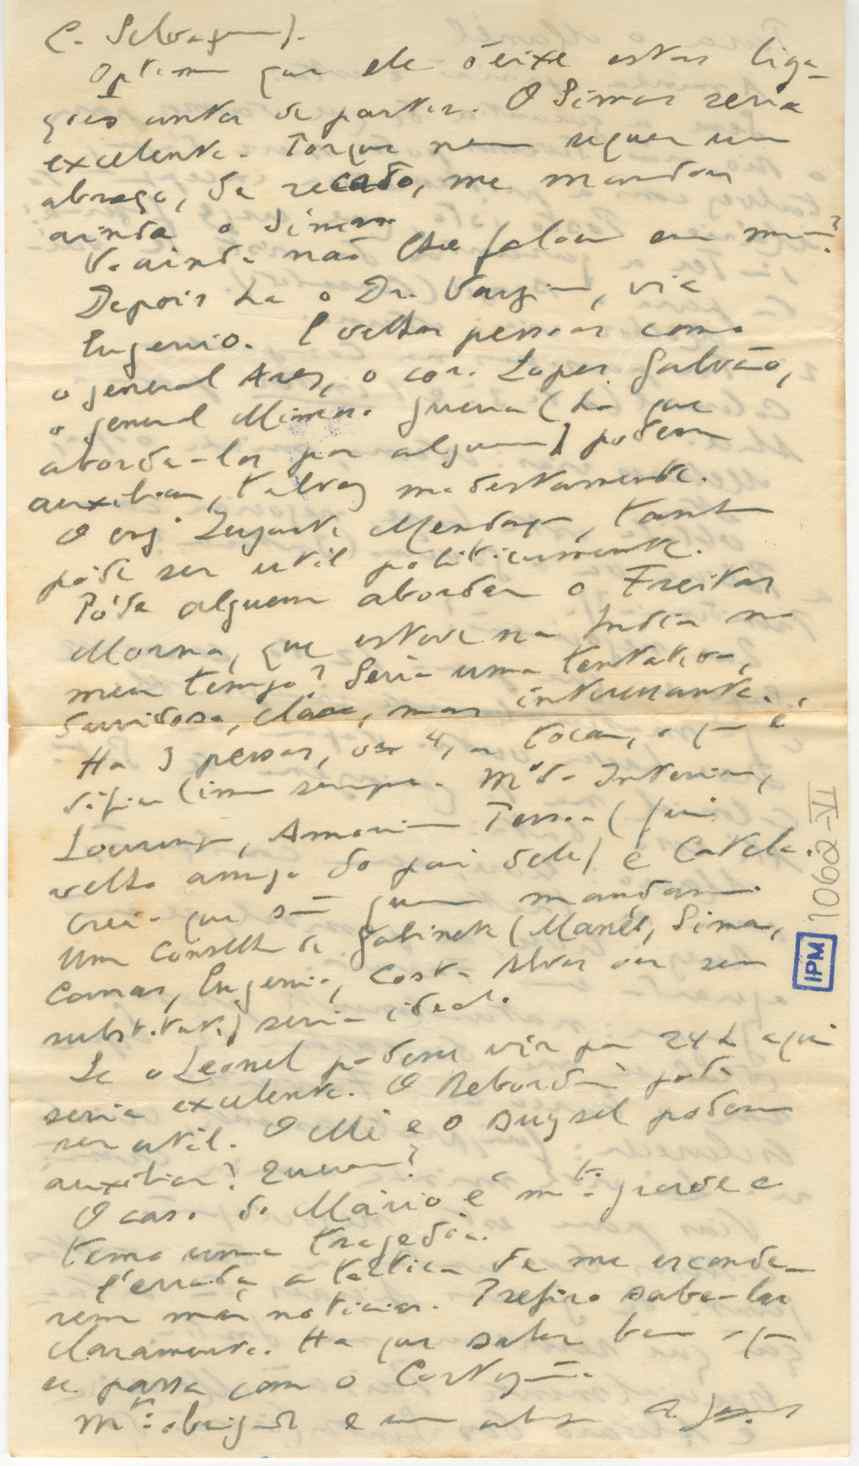 C. Selvagem).
Optimo que ele deixe estas liga-
ções antes de partir. O Simas seria
excelente. Porque nem sequer um
abraço, de recado, me mandou
ainda o Simas
ainda não lhe falou em mim?
Depois ha o Dr. via
Eugenio. E velhas pessoas como
o general Ares, o cor. Lopes Galvão,
o general Guerra (ha que
aborda-los por alguem) podem
auxiliar, talvez modestamente.
O engº Zuzarte Mendonça, tambem
póde ser util politicamente.
Póde alguem abordar o Freitas
Morna, que esteve na India no
meu tempo? Seria uma tentativa,
duvidosa, claro, mas interessante.
Ha 3 pessoas, ou 4, a tocar, o que é
dificilimo sempre. Mº do Interior,
Lourenço, Amorim Pessoa (fui
velho amigo do pai dele) e Catela.
Creio que são quem manda
Um conselho de gabinete (Manél, Simas,
Comas, Eugenio, Costa Alves ou seu
substituto) seria ideal.
Se o Leonel pudesse vir por 24 h aqui
seria excelente. O Rebordão pode
ser util. O Mé e o podem
auxiliar? Querem?
O caso do Mário é mtº grave e
temo uma tragedia.
Errada a tactica de me esconde-
rem más noticias. Prefiro sabe-las
claramente. Ha que saber bem o que
se passa com o Cortezão.
Mtº obrigado e um abraço
IPM
1062-VI